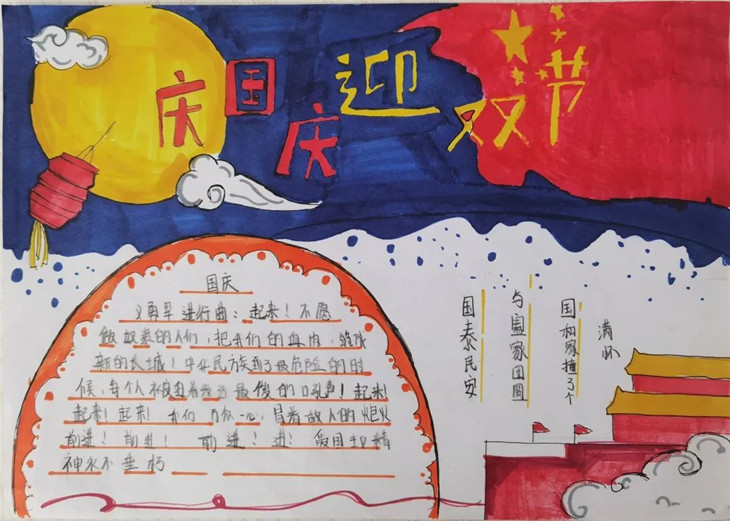 庆国庆迎双节
国庆
义勇军进行曲：起来！不愿
做奴隶的人们，把我们的血肉，筑成
新的长城！中华民族到了最危险的时
候，每个人被迫着发出最后的吼声！起来！
起来！起来！我们万众一心，冒着敌人的炮火
前进！前进！前进！进！
神永不垂朽
国和家撞了个
满怀
与阖家团圆
国泰民安